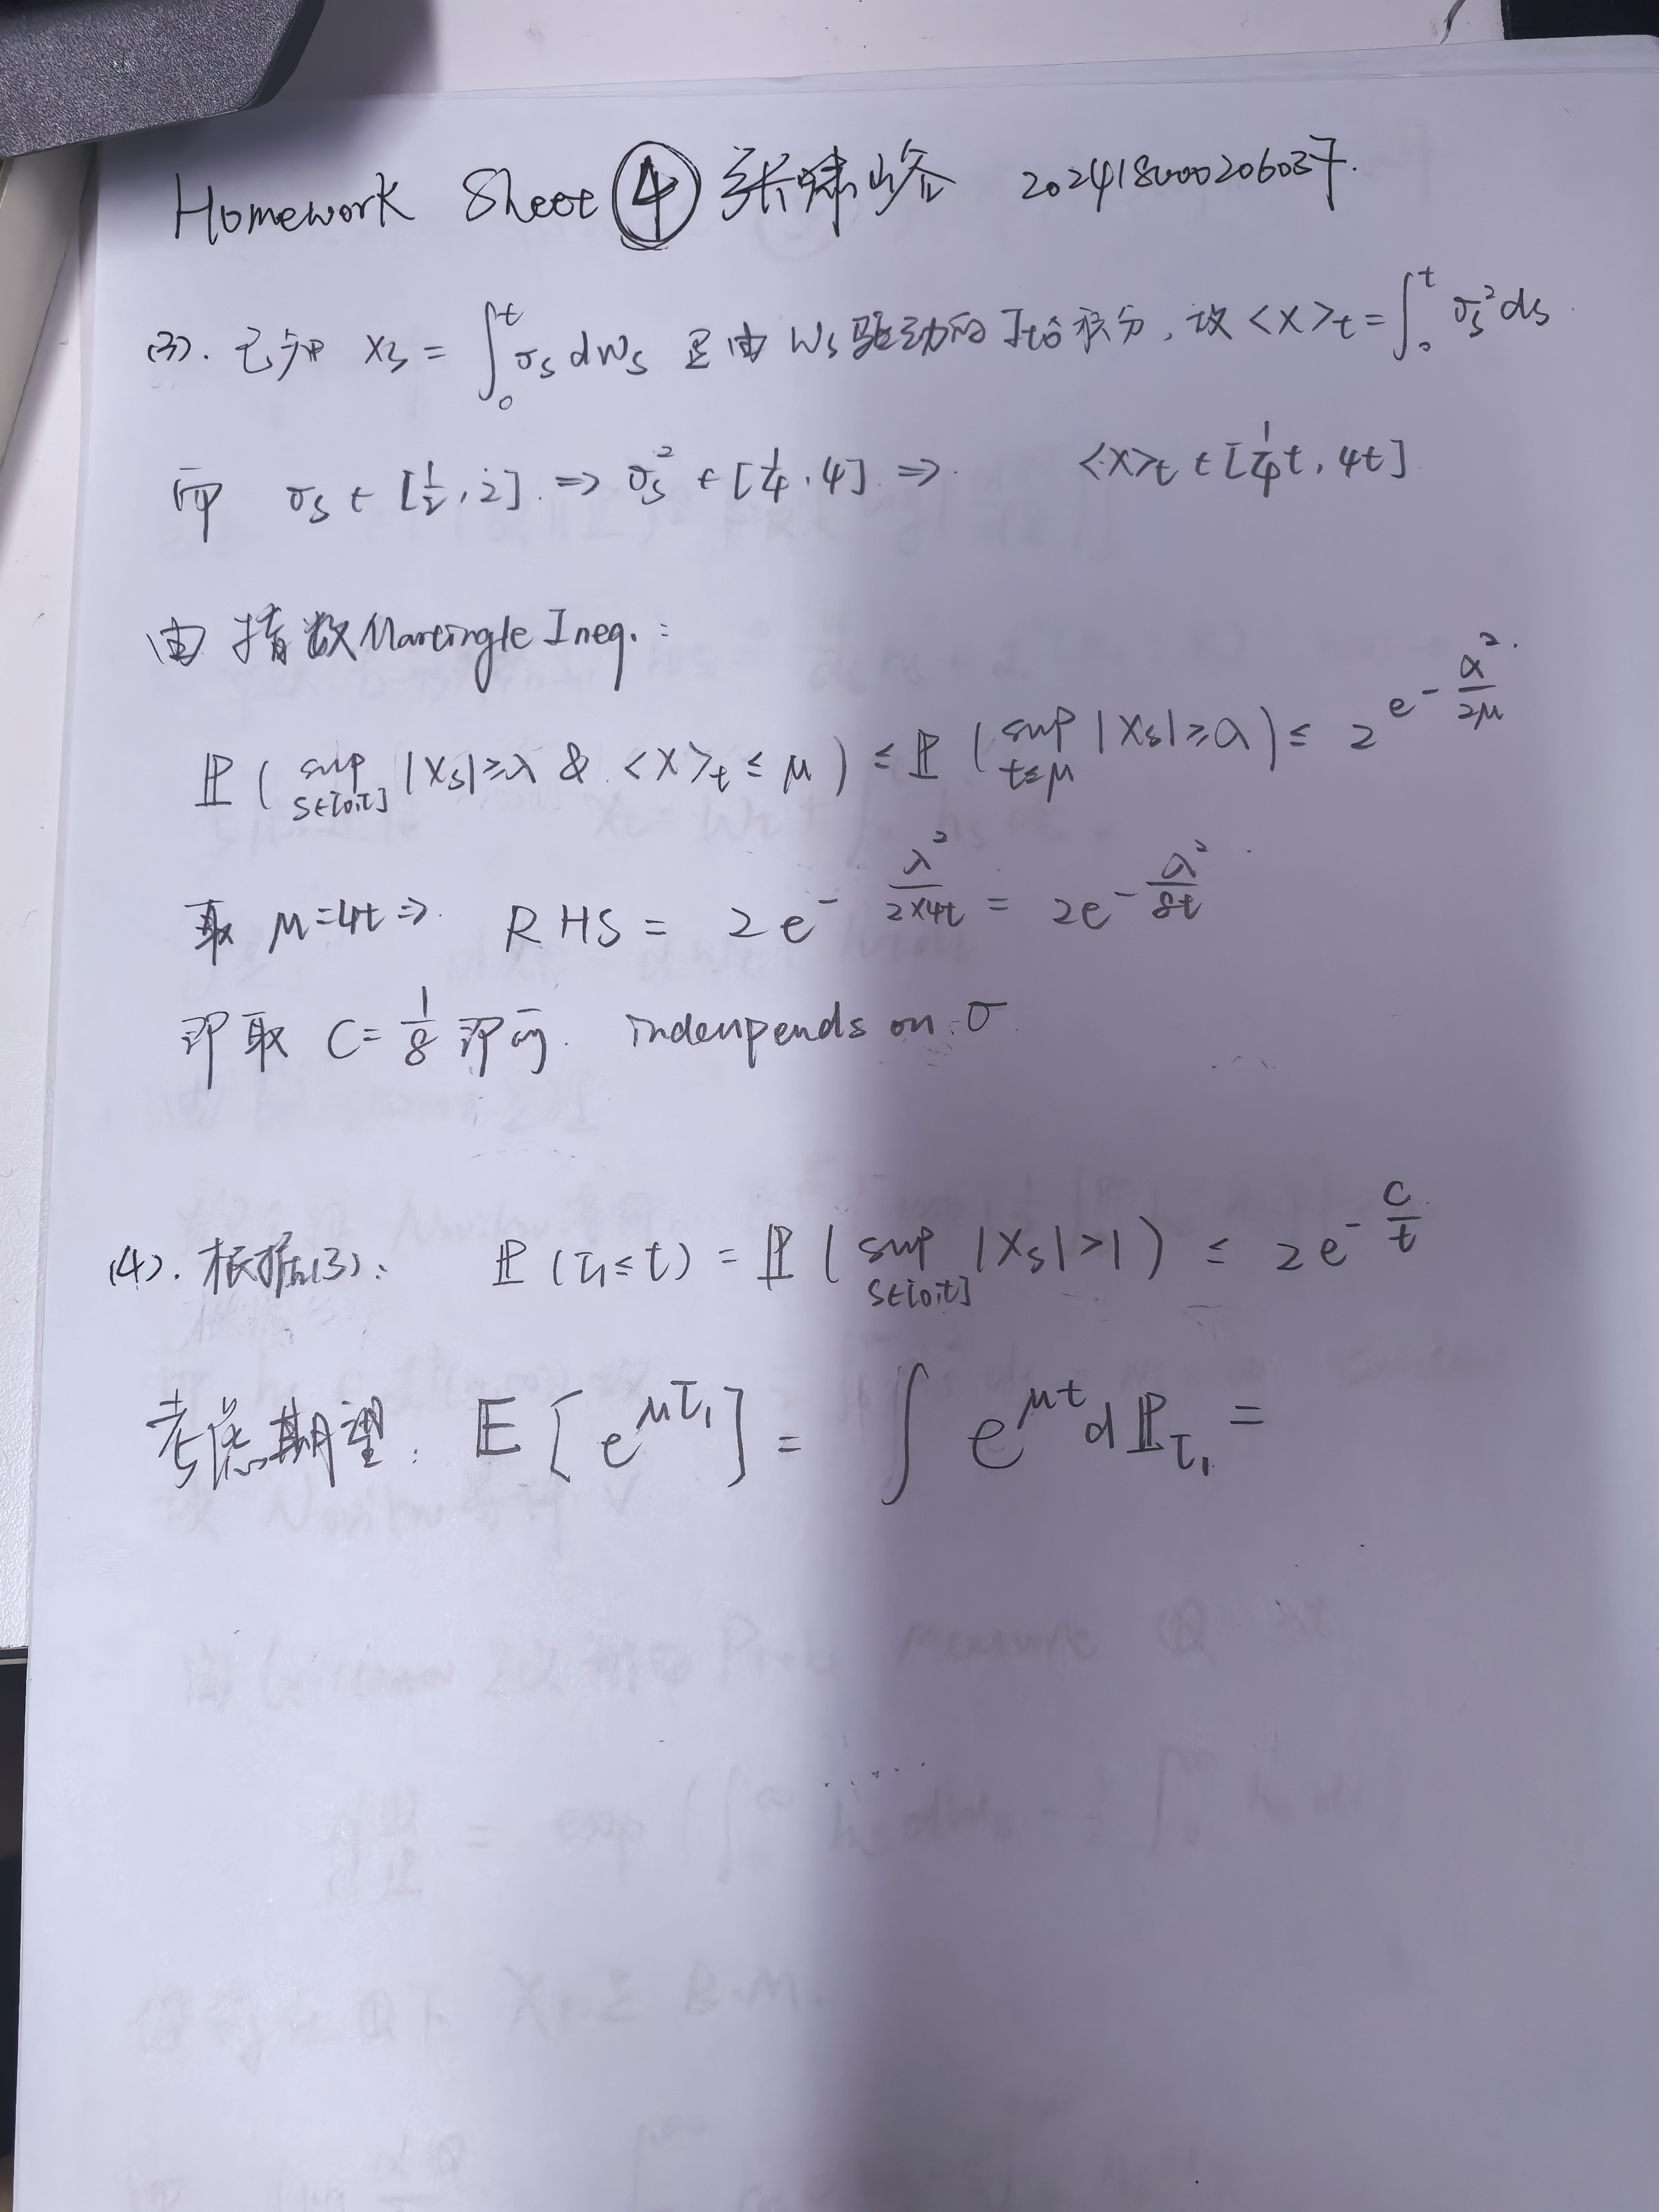 Homework Sheet ④ 张啸峪 202418000206037.
(3). 已知 Xs = ∫₀ᵗ σs dWs 是由 Ws 驱动的 Itô 积分, 故 <X>t = ∫₀ᵗ σs² ds.
而 σs ∈ [1/2, 2]. ⇒ σs² ∈ [1/4, 4] ⇒ <X>t ∈ [1/4 t, 4t]
由 指数 Martingle Ineq. :
ℙ ( sup_{s∈[0,t]} |Xs| ≥ λ & <X>t ≤ μ ) ≤ ℙ ( sup_{t≤μ} |Xs| ≥ λ ) ≤ 2 e^{-λ²/2μ}.
取 μ = 4t ⇒ RHS = 2 e^{-λ²/2×4t} = 2e^{-λ²/8t}.
即取 C = 1/8 即可. indenpends on σ
(4). 根据(3): ℙ (τ₁ ≤ t) = ℙ ( sup_{s∈[0,t]} |Xs| > 1 ) ≤ 2 e^{-C/t}
考虑期望: E [ e^{μτ₁} ] = ∫ e^{μt} dℙ_{τ₁} =